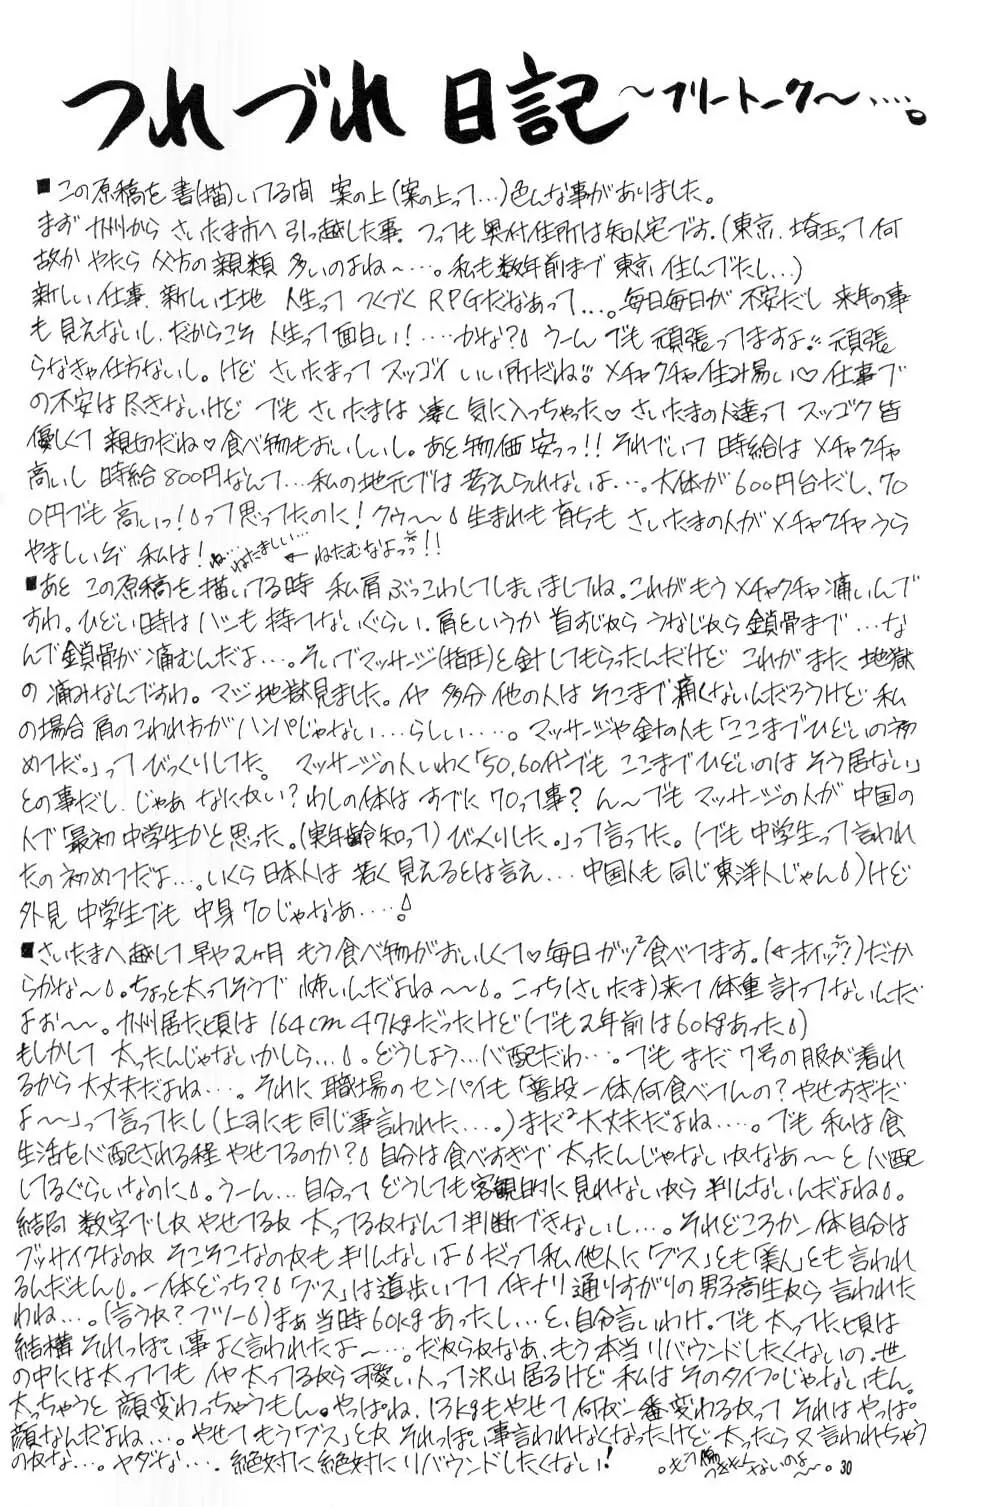 つれづれ日記 〜フリートーク〜‥‥。
■この原稿を書(描)いてる間 案の上(案の上って…)色んな事がありました。
まず 九州から さいたま市へ 引っ越した事。つっても奥付住所は知人宅です。(東京、埼玉って何
故か やたら 父方の親類 多いのよね〜…。私も数年前まで 東京 住んでたし…)
新しい仕事、新しい土地 人生って つくづく RPGだなあって…。毎日毎日が 不安だし 来年の事
も 見えないし、だからこそ 人生って面白い!‥‥かな? うーん でも 頑張ってますよ!! 頑張
らなきゃ仕方ないし。けど さいたまって スッゴイ いい所だね!! メチャクチャ住み易い♡ 仕事で
の不安は 尽きないけど でも さいたまは 凄く 気に入っちゃった♡ さいたまの人達って スッゴク 皆
優しくて 親切だね♡ 食べ物もおいしいし。あと 物価 安っっ!! それでいて 時給は メチャクチャ
高いし 時給800円なんて…私の地元では 考えられないよ…。大体が 600円台だし、70
0円でも 高いっ!って思ってたのに! クゥ〜〜 生まれも 育ちも さいたまの人が メチャクチャ うら
やましいぞ 私は! ね…ねたましい… ← ねたむなよっっ!!
■あと この原稿を 描いてる時 私 肩 ぶっこわしてしまいましてね。これがもう メチャクチャ 痛いんで
すわ。ひどい時は ハシも 持てないぐらい、肩というか 首すじから うなじから 鎖骨まで…な
んで 鎖骨が 痛むんだよ…。そいでマッサージ(指圧)と針してもらったんだけど これがまた 地獄
の 痛みなんですわ。マジ 地獄 見ました。イヤ 多分 他の人は そこまで 痛くないんだろうけど 私
の場合 肩の こわれ方が ハンパじゃない…らしい…。マッサージや 針の人も「ここまでひどいの初
めてだ。」って びっくりしてた。 マッサージの人いわく「50,60代でも ここまでひどいのは そう居ない」
との事だし、じゃあ なにかい? わしの体は すでに 70って事? ん〜でも マッサージの人が 中国の
人で「最初 中学生かと思った。(実年齢知って) びっくりした。」って言ってた。(でも 中学生って 言われ
たの初めてだよ…。いくら 日本人は 若く見えるとは言え… 中国人も 同じ東洋人じゃん)けど
外見 中学生でも 中身 70じゃなあ‥‥
■さいたまへ越して 早や2ヶ月 もう 食べ物が おいしくて♡ 毎日 ガツ²食べてます。(←オイッ??)だか
らかな〜。ちょっと太ってそうで 怖いんだよね〜〜。こっち(さいたま)来て 体重 計ってないんだ
よぉ〜〜。九州居た頃は 164cm 47kgだったけど(でも2年前は60kgあった)
もしかして 太ったんじゃないかしら…。どうしよう…心配だわ…。でも まだ 7号の服が 着れ
るから 大丈夫だよね…。それに 職場の センパイも「普段 一体何食べてんの? やせすぎだ
よ〜〜」って言ってたし(上司にも 同じ事言われた…。) まだ² 大丈夫だよね…。でも 私は 食
生活を 心配される程 やせてるのか? 自分は 食べすぎで 太ったんじゃないかなあ〜〜 と 心配
してるぐらいなのに。うーん…自分って どうしても 客観的に 見れないから 判んないんだよね。
結局 数字でしか やせてるか 太ってるかなんて 判断できないし…。それどころか 一体自分は
ブッサイクなのか そこそこなのかも 判んないよ だって 私 他人に「ブス」とも「美人」とも 言われ
るんだもん。一体どっち?「ブス」は 道歩いてて イキナリ 通りすがりの 男子高生から 言われた
わね…。(言うか? フツー)まぁ 当時60kgあったし…と、自分言いわけ。でも 太ってた頃は
結構 それっぽい事 よく言われたよ〜…。だからなあ、もう本当 リバウンドしたくないの。世
の中には 太ってても イヤ 太ってるから 可愛い人って 沢山 居るけど 私は そのタイプじゃないもん。
太っちゃうと 顔変わっちゃうもん。やっぱね、13kgもやせて 何が一番変わるかって それはやっぱ
顔なんだよね…。やせて もう「ブス」とか それっぽい事言われなくなったけど 太ったら 又 言われちゃう
のかな…。ヤダな…。絶対に 絶対に リバウンドしたくない!
30